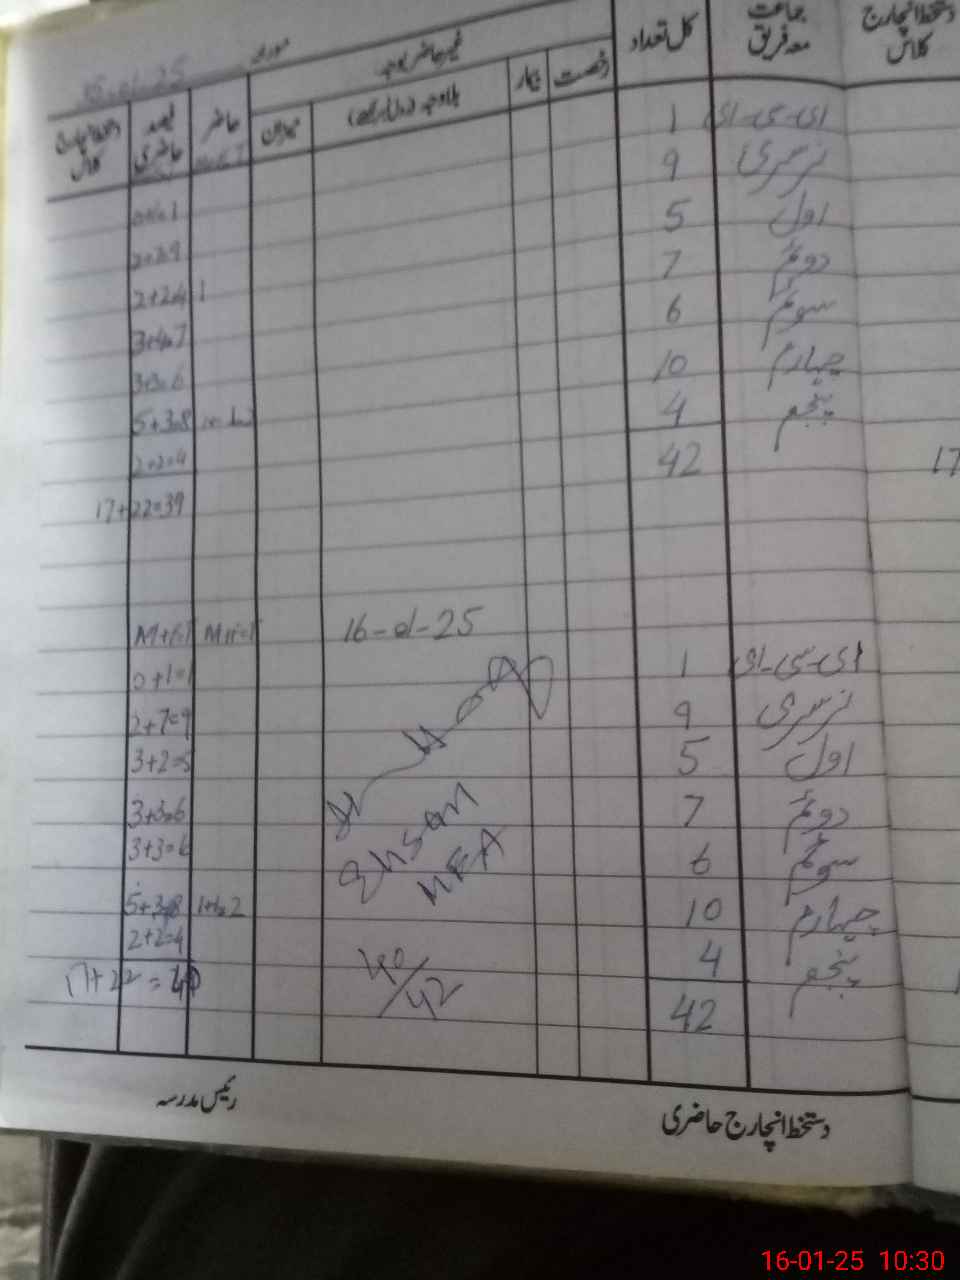 دستخط انچارج کلاس
جماعت معہ فریق
کل تعداد
غیر حاضر بوجہ
رخصت
بیمار
بلا وجہ
میزان
حاضر
فیصد حاضری
کلاس
ای-سی-ای 1
نرسری 9
اول 5 2+2=4 1
دوئم 7 3+4=7
سوئم 6 3+3=6
چہارم 10 5+3=8
پنجم 4 2+2=4
42 17
17+22=39
16-01-25
ای-سی-ای 1 0+1=1
نرسری 9 2+7=9
اول 5 3+2=5
دوئم 7 3+3=6
سوئم 6 3+3=6
چہارم 10 5+3=8 1+1=2
پنجم 4 2+2=4
Ehsan
MEA
40/42
42 17+22=40
دستخط انچارج حاضری
رئیس مدرسہ
16-01-25 10:30